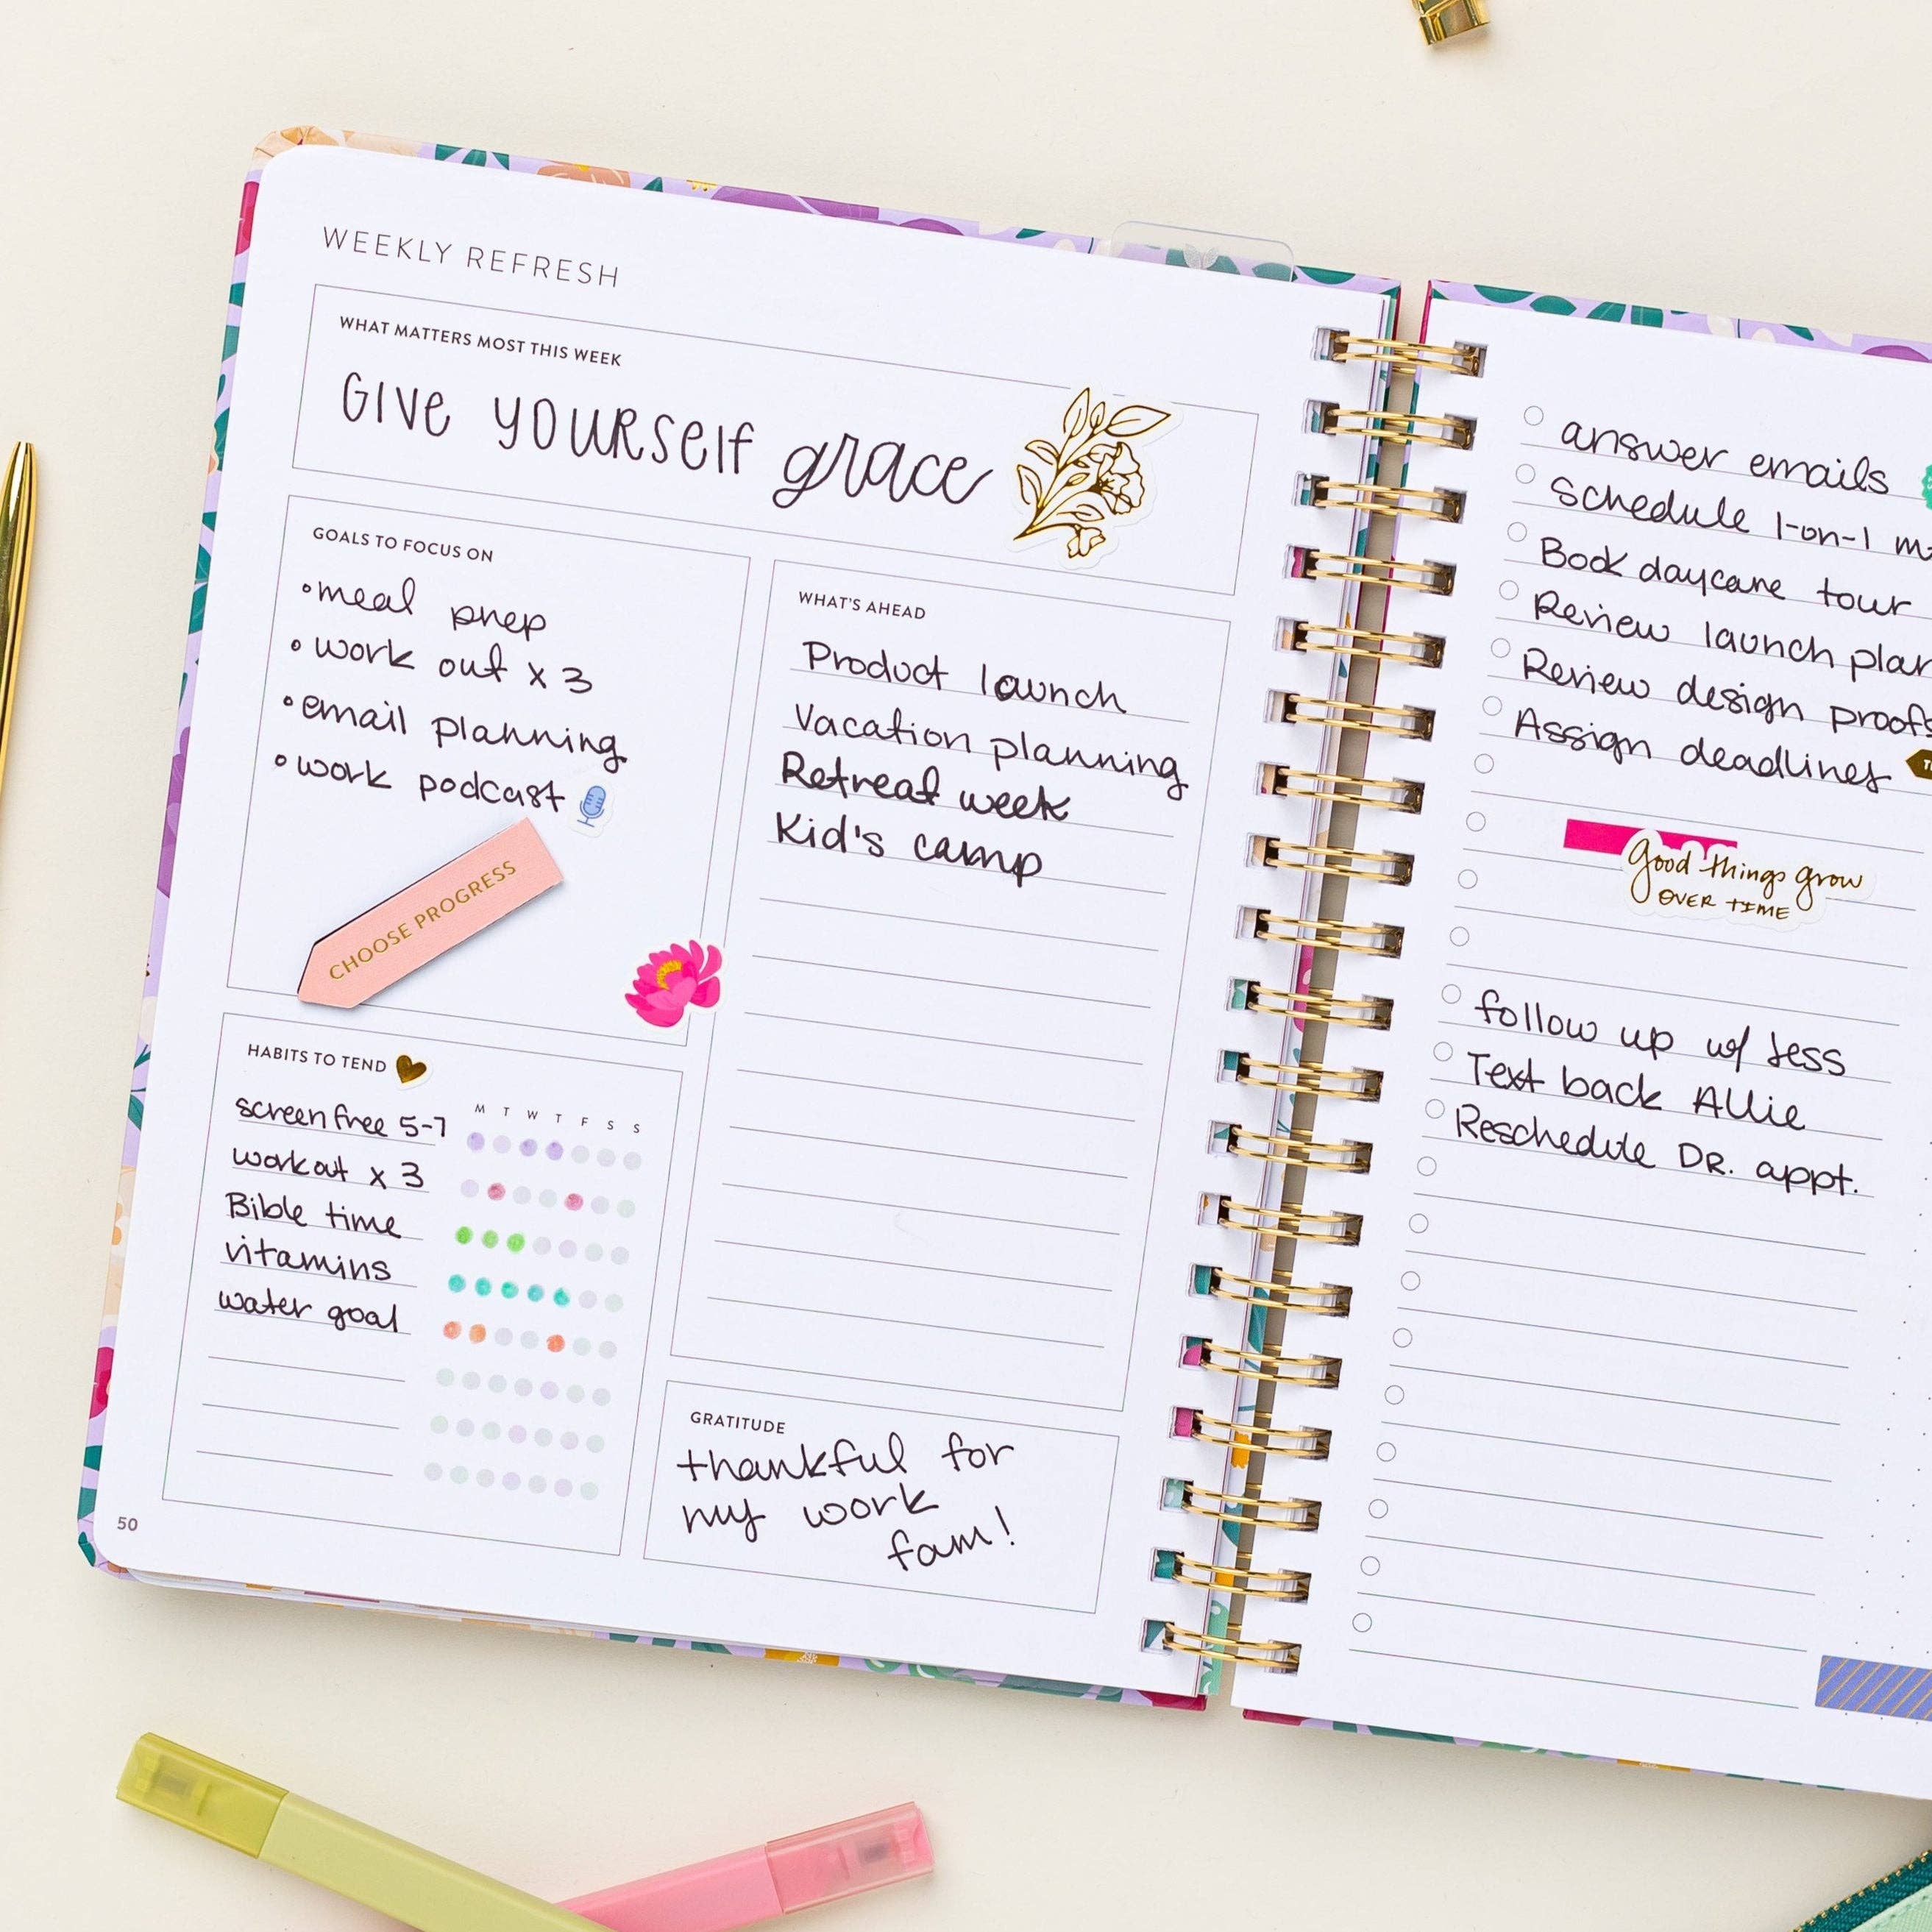 WEEKLY REFRESH
WHAT MATTERS MOST THIS WEEK
GIVE YOURSELF grace
GOALS TO FOCUS ON
•meal prep
• work out x 3
•email planning
•work podcast
CHOOSE PROGRESS
WHAT'S AHEAD
Product launch
Vacation planning
Retreat week
Kid's camp
HABITS TO TEND
M T W T F S S
screen free 5-7
workout x 3
Bible time
vitamins
water goal
GRATITUDE
thankful for
my work
fam!
50
answer emails
schedule 1-on-1
Book daycare tour
Review launch plan
Review design proofs
Assign deadlines
good things grow
OVER TIME
follow up w/ Jess
Text back Allie
Reschedule DR. appt.